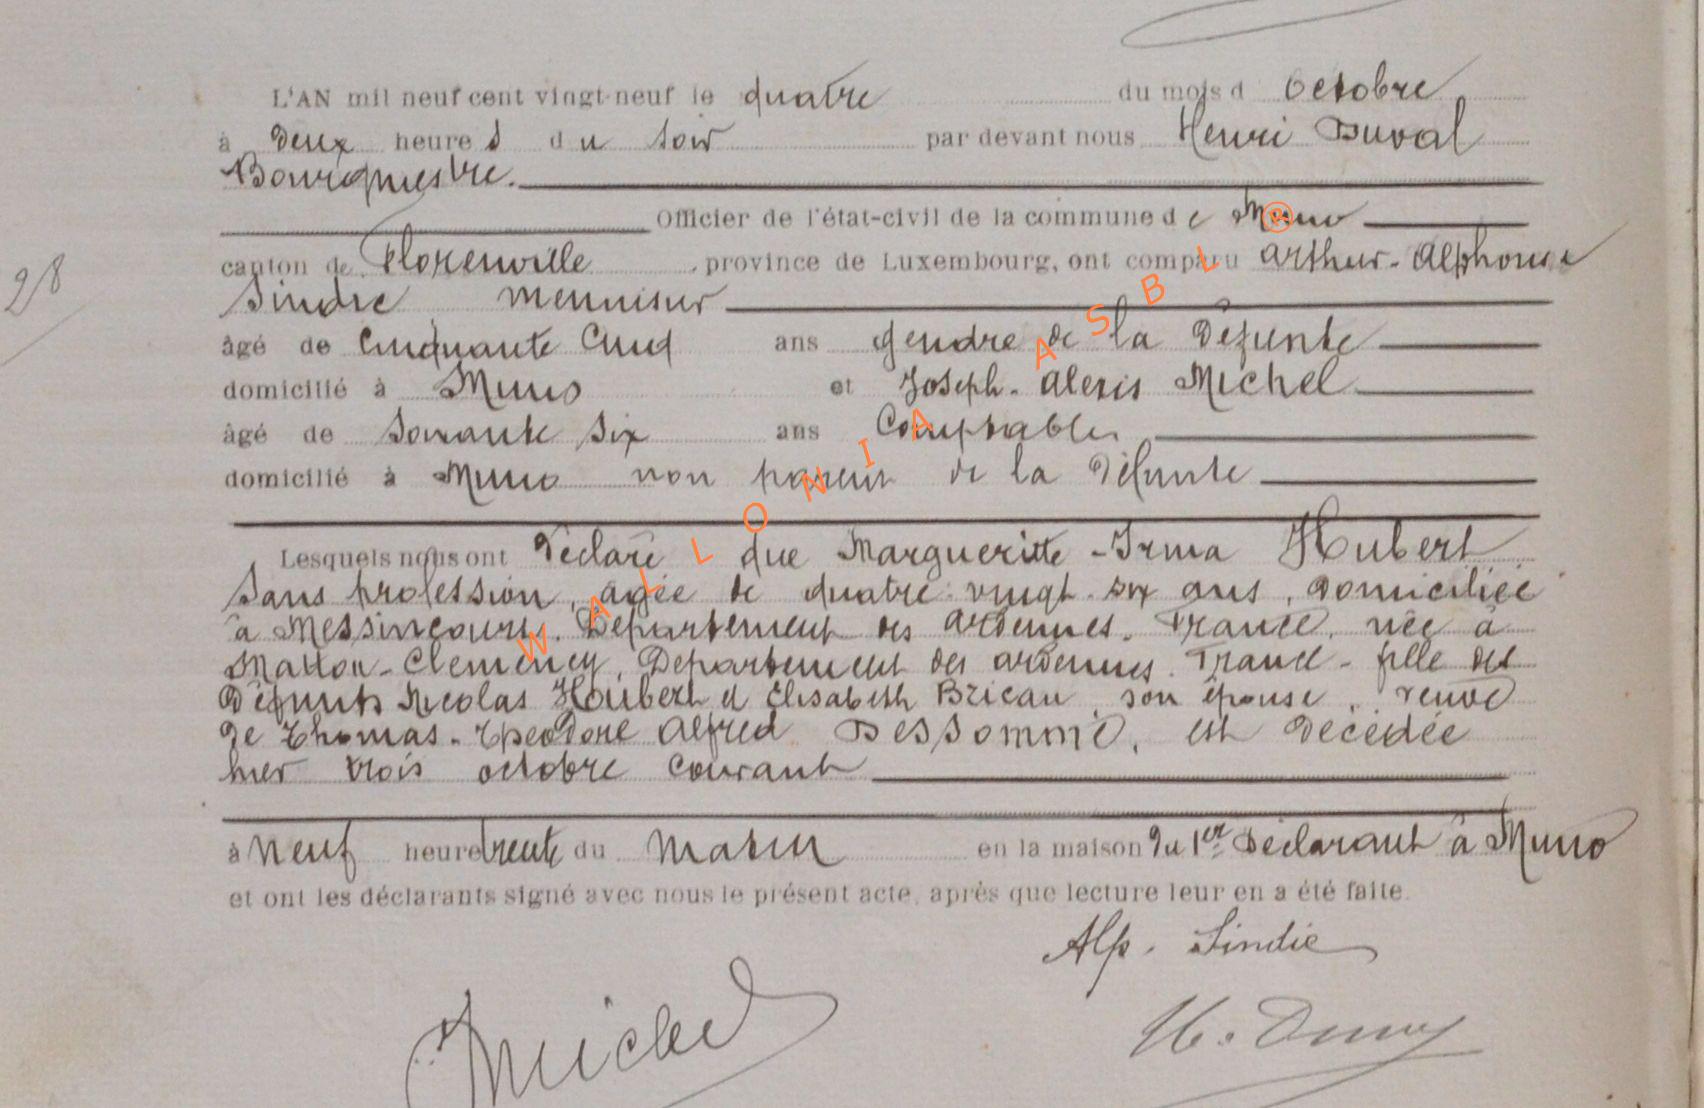 L'AN mil neuf cent vingt-neuf le quatre du mois d Octobre
à Deux heure s d u soir par devant nous Henri Duval
Bourgmestre.
Officier de l'état-civil de la commune d e Muno
canton de Florenville, province de Luxembourg, ont comparu Arthur-Alphonse
Sindic menuisier
âgé de Cinquante Cinq ans gendre de la Défunte
domicilié à Muno et Joseph-Alexis Michel
âgé de Soixante Six ans Comptable
domicilié à Muno non parent de la Défunte
Lesquels nous ont Déclaré que Margueritte-Irma Hubert
Sans profession, agée de quatre-vingt-six ans, Domiciliée
à Messincourt. Département des Ardennes. France, née à
Matton-Clemency, Département des Ardennes. France-fille des
Défunts Nicolas Houbert et Elisabeth Brican, son épouse, veuve
De Thomas-Théodore Alfred Dessomme, est Décédée
hier trois octobre Courant
à Neuf heure trente du Matin en la maison Du 1er Déclarant à Muno
et ont les déclarants signé avec nous le présent acte, après que lecture leur en a été faite.
Alp. Sindic
Michel
H. Duval
28
WALLONIA ASBL ®